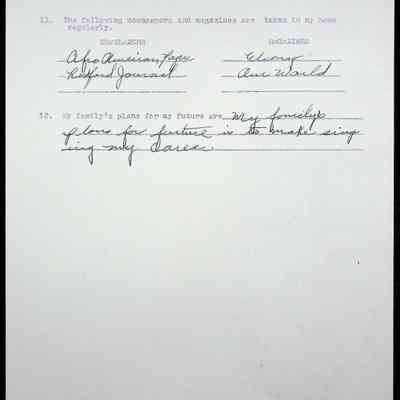 11. The following newspapers and magazines are taken in my home
regularly.
NEWSPAPERS MAGAZINES
Afro American Paper Ebony
Radford Journal Our World
12. My family's plans for my future are My family's
plans for furture is to make sing
ing my career.